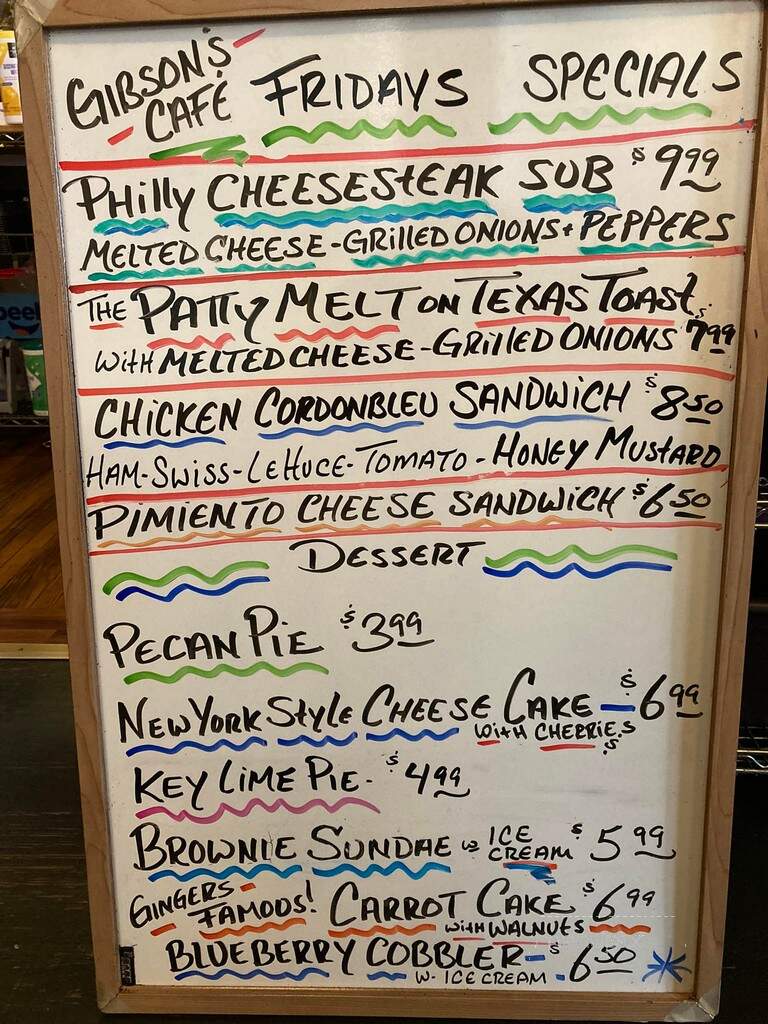 GIBSON'S CAFÉ FRIDAYS SPECIALS
PHILLY CHEESESTEAK SUB $9.99
MELTED CHEESE - GRILLED ONIONS + PEPPERS
THE PATTY MELT ON TEXAS TOAST
WITH MELTED CHEESE - GRILLED ONIONS $7.99
CHICKEN CORDONBLEU SANDWICH $8.50
HAM - SWISS - LETTUCE - TOMATO - HONEY MUSTARD
PIMIENTO CHEESE SANDWICH $6.50
DESSERT
PECAN PIE $3.99
NEW YORK STYLE CHEESE CAKE - $6.99
WITH CHERRIES
KEY LIME PIE - $4.99
BROWNIE SUNDAE W ICE CREAM $5.99
GINGERS FAMOUS! CARROT CAKE $6.99
WITH WALNUTS
BLUEBERRY COBBLER - $6.50
W - ICE CREAM -